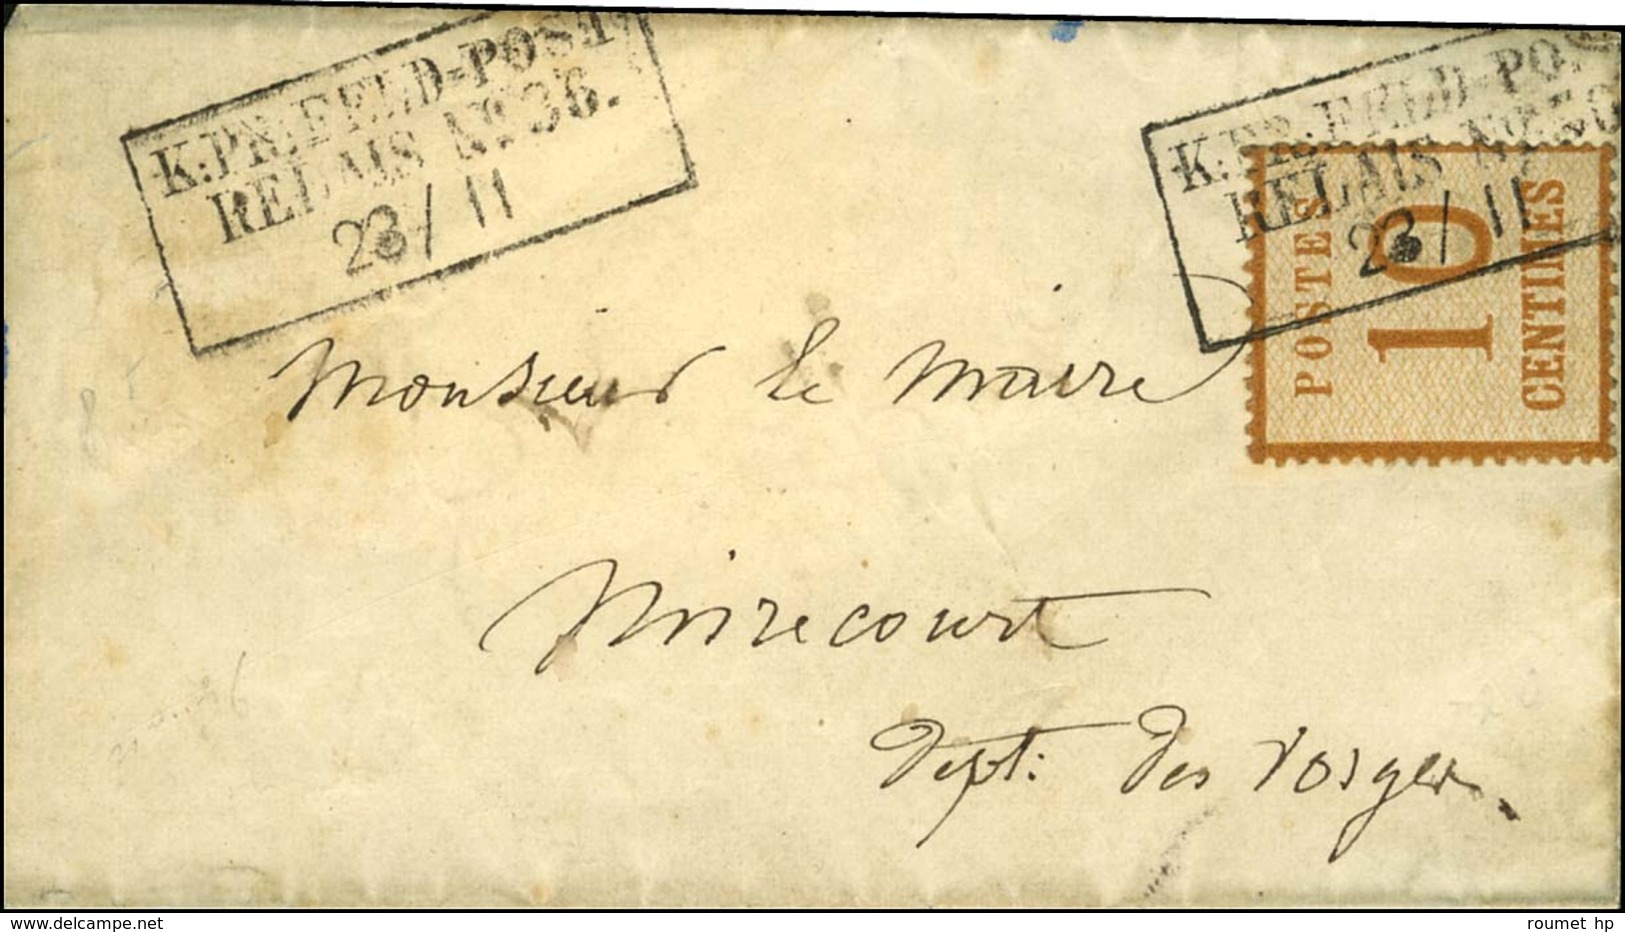 K:PR:FELD-POST
RELAIS No. 36.
23/11
K:PR:FELD-PO
RELAIS No
23/11
POSTES
10
CENTIMES
Monsieur le Maire
Mirecourt
Dept: des Vosges.
www.delcampe.net
roumet hp